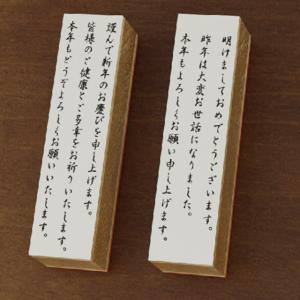 明けましておめでとうございます。
昨年は大変お世話になりました。
本年もよろしくお願い申し上げます。
謹んで新年のお慶びを申し上げます。
皆様のご健康とご多幸をお祈りいたします。
本年もどうぞよろしくお願いいたします。